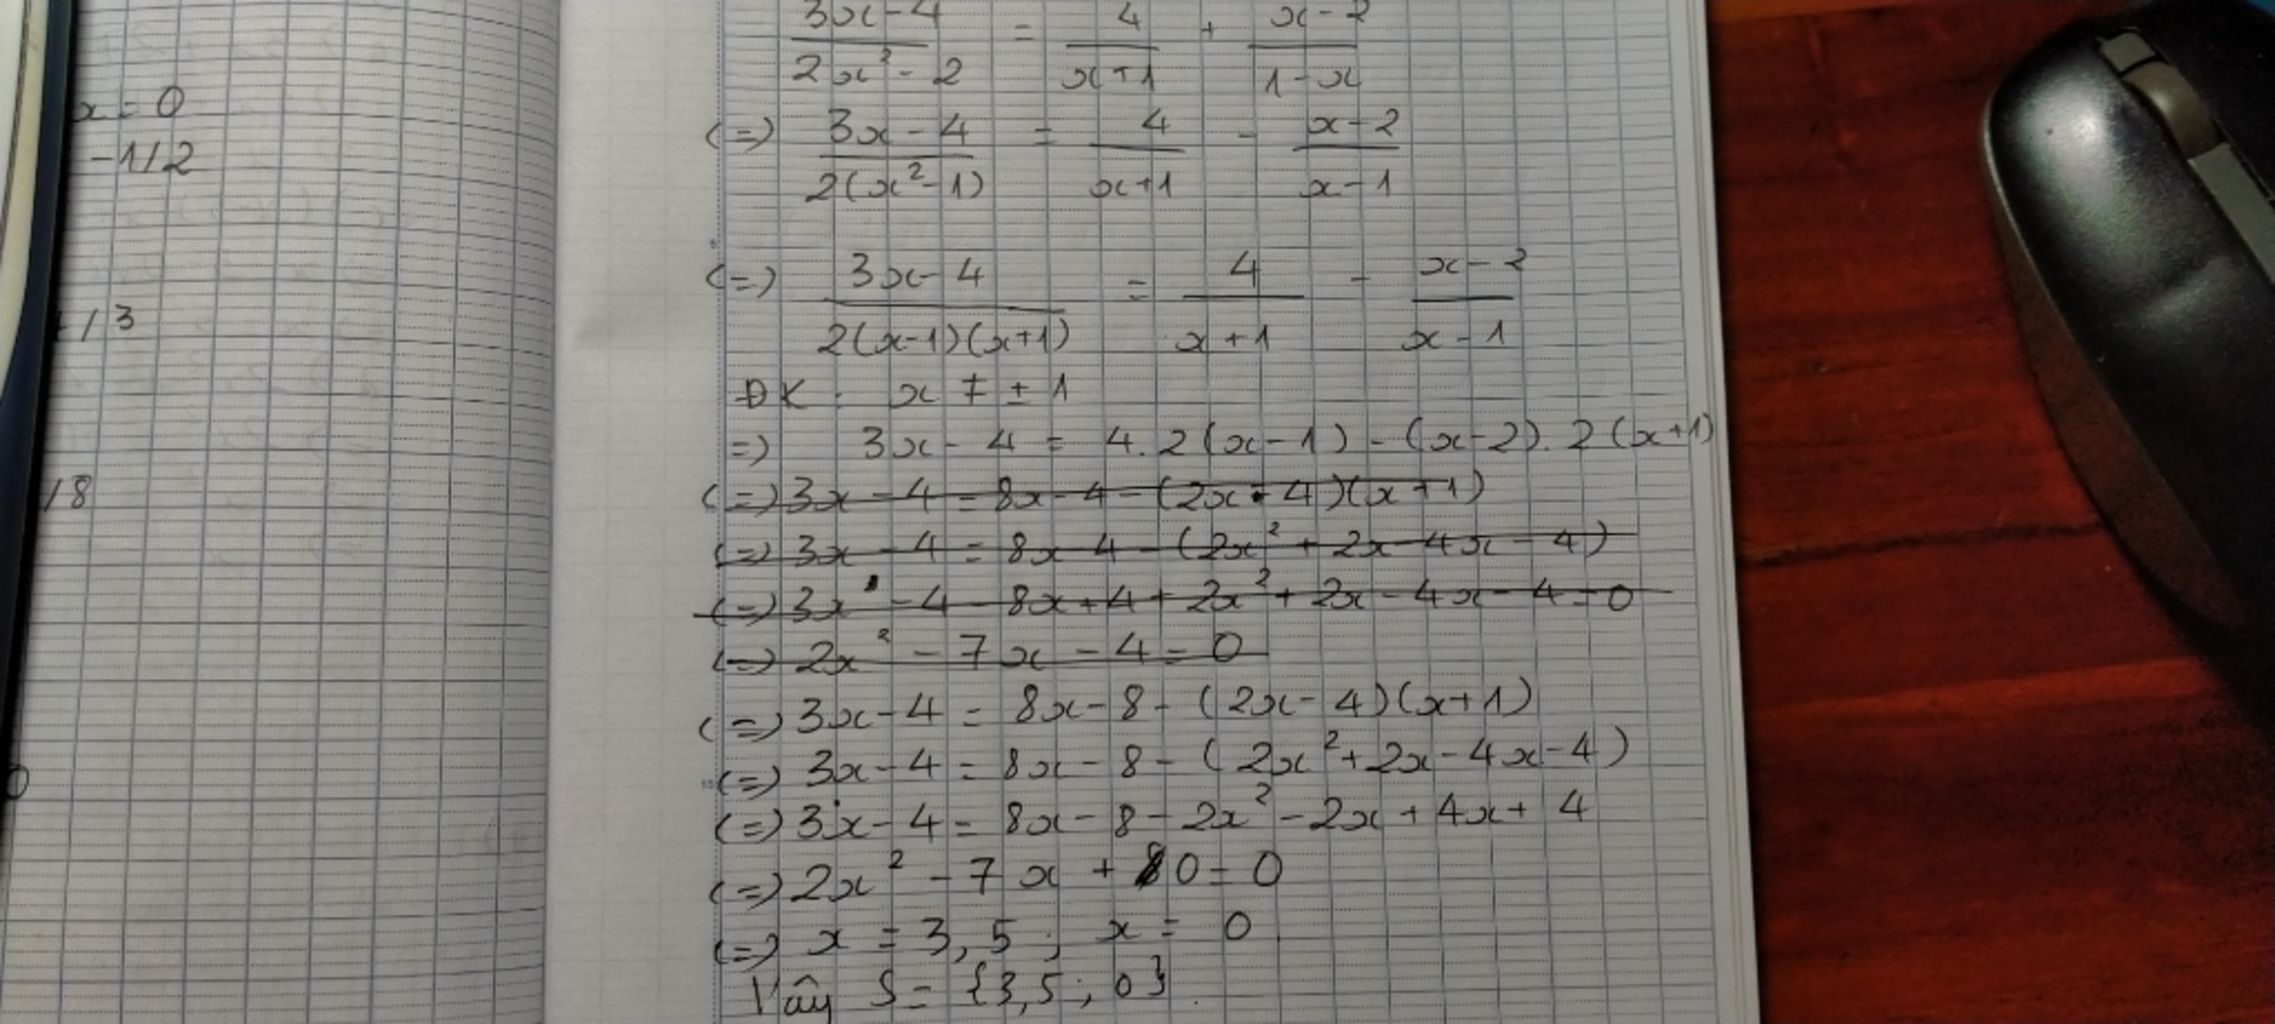 x = 0
-1/2
/3
/8
0
(3x-4)/(2x²-2) = 4/(x+1) + (x-2)/(1-x)
(=) (3x-4)/(2(x²-1)) = 4/(x+1) - (x-2)/(x-1)
(=) (3x-4)/(2(x-1)(x+1)) = 4/(x+1) - (x-2)/(x-1)
ĐK : x ≠ ± 1
=) 3x - 4 = 4.2(x-1) - (x-2).2(x+1)
(=) 3x - 4 = 8x - 4 - (2x-4)(x+1)
(=) 3x - 4 = 8x - 4 - (2x² + 2x - 4x - 4)
(=) 3x - 4 - 8x + 4 + 2x² + 2x - 4x - 4 = 0
(=) 2x² - 7x - 4 = 0
(=) 3x - 4 = 8x - 8 - (2x - 4)(x+1)
(=) 3x - 4 = 8x - 8 - (2x² + 2x - 4x - 4)
(=) 3x - 4 = 8x - 8 - 2x² - 2x + 4x + 4
(=) 2x² - 7x + 0 = 0
(=) x = 3,5 ; x = 0
Vây S = {3,5 ; 0}